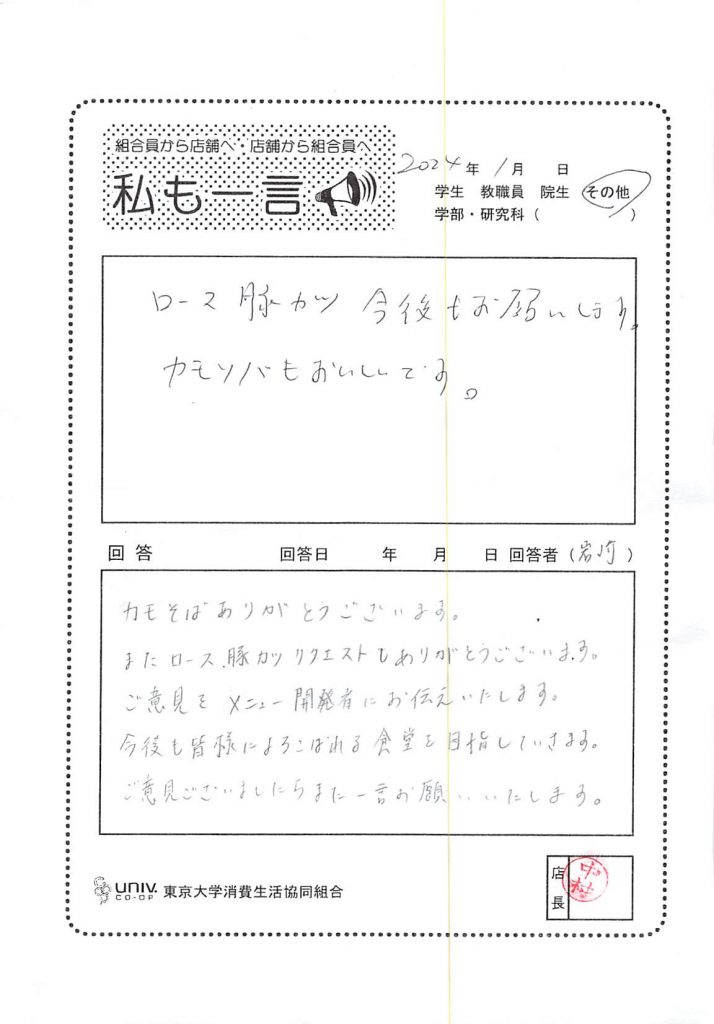 組合員から店舗へ・店舗から組合員へ
私も一言
2024年 1月 日
学生 教職員 院生 その他
学部・研究科（ ）
ロース豚カツ 今後もお願いします。
カモソバもおいしいです。
回答 回答日 年 月 日 回答者（岩崎）
カモそばありがとうございます。
またロース豚カツリクエストもありがとうございます。
ご意見をメニュー開発者にお伝えいたします。
今後も皆様によろこばれる食堂を目指していきます。
ご意見ございましたらまた一言お願いいたします。
UNIV. CO-OP 東京大学消費生活協同組合
店長 中村